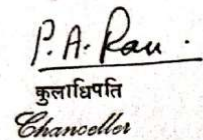 P. A. Rau.
कुलाधिपति
Chancellor